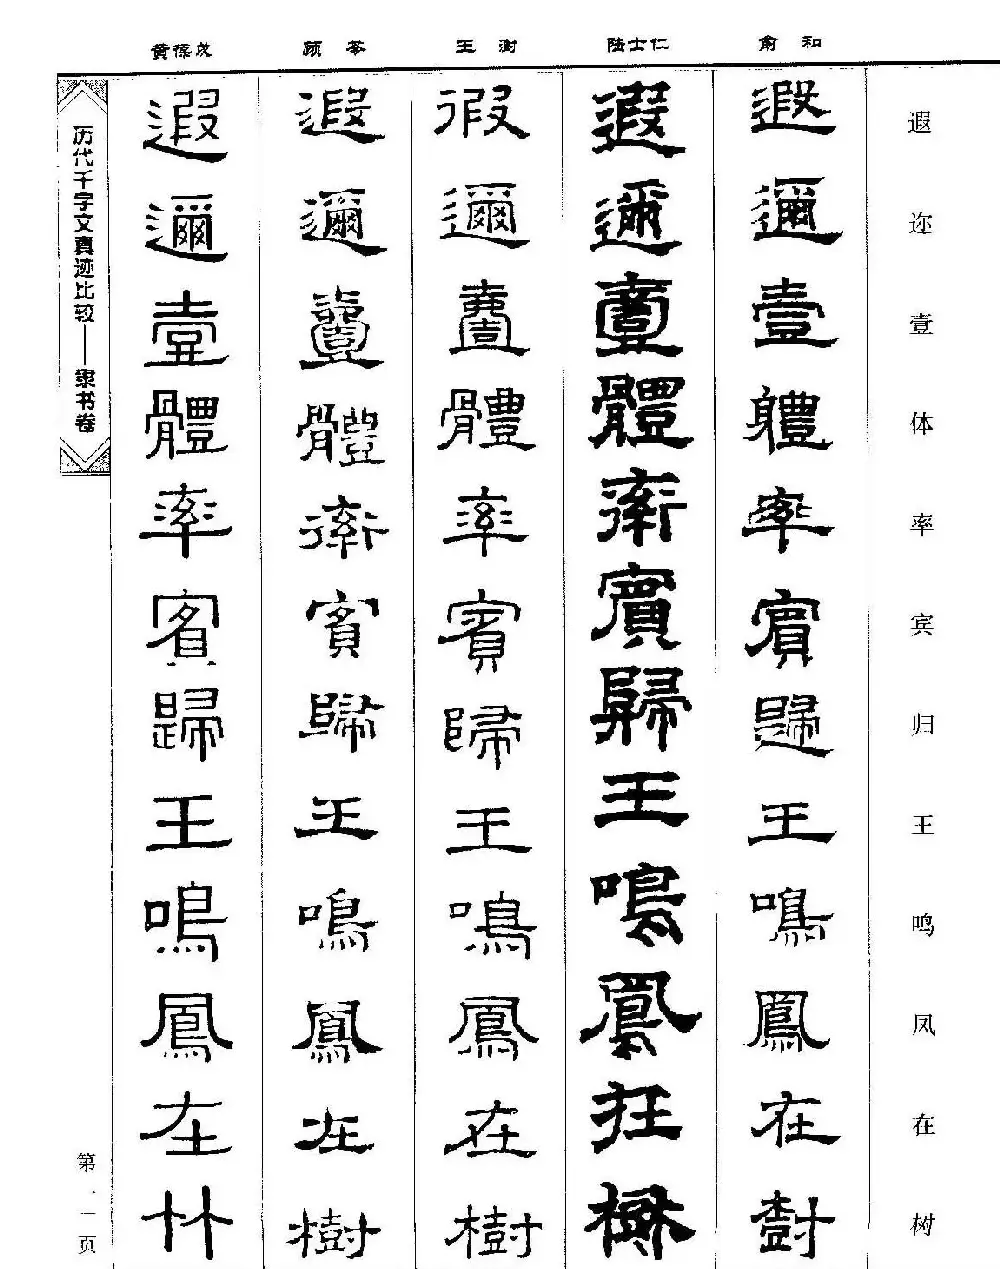 黄葆戉 顾苓 王澍 陆士仁 俞和
遐迩壹体率宾归王鸣凤在树
遐邇壹體率賓歸王鳴鳳在樹
遐邇壹體率賓歸王鳴鳳在樹
遐邇壹體率賓歸王鳴鳳在樹
遐邇壹體率賓歸王鳴鳳在樹
遐邇壹體率賓歸王鳴鳳在
历代千字文真迹比较——隶书卷
第
页